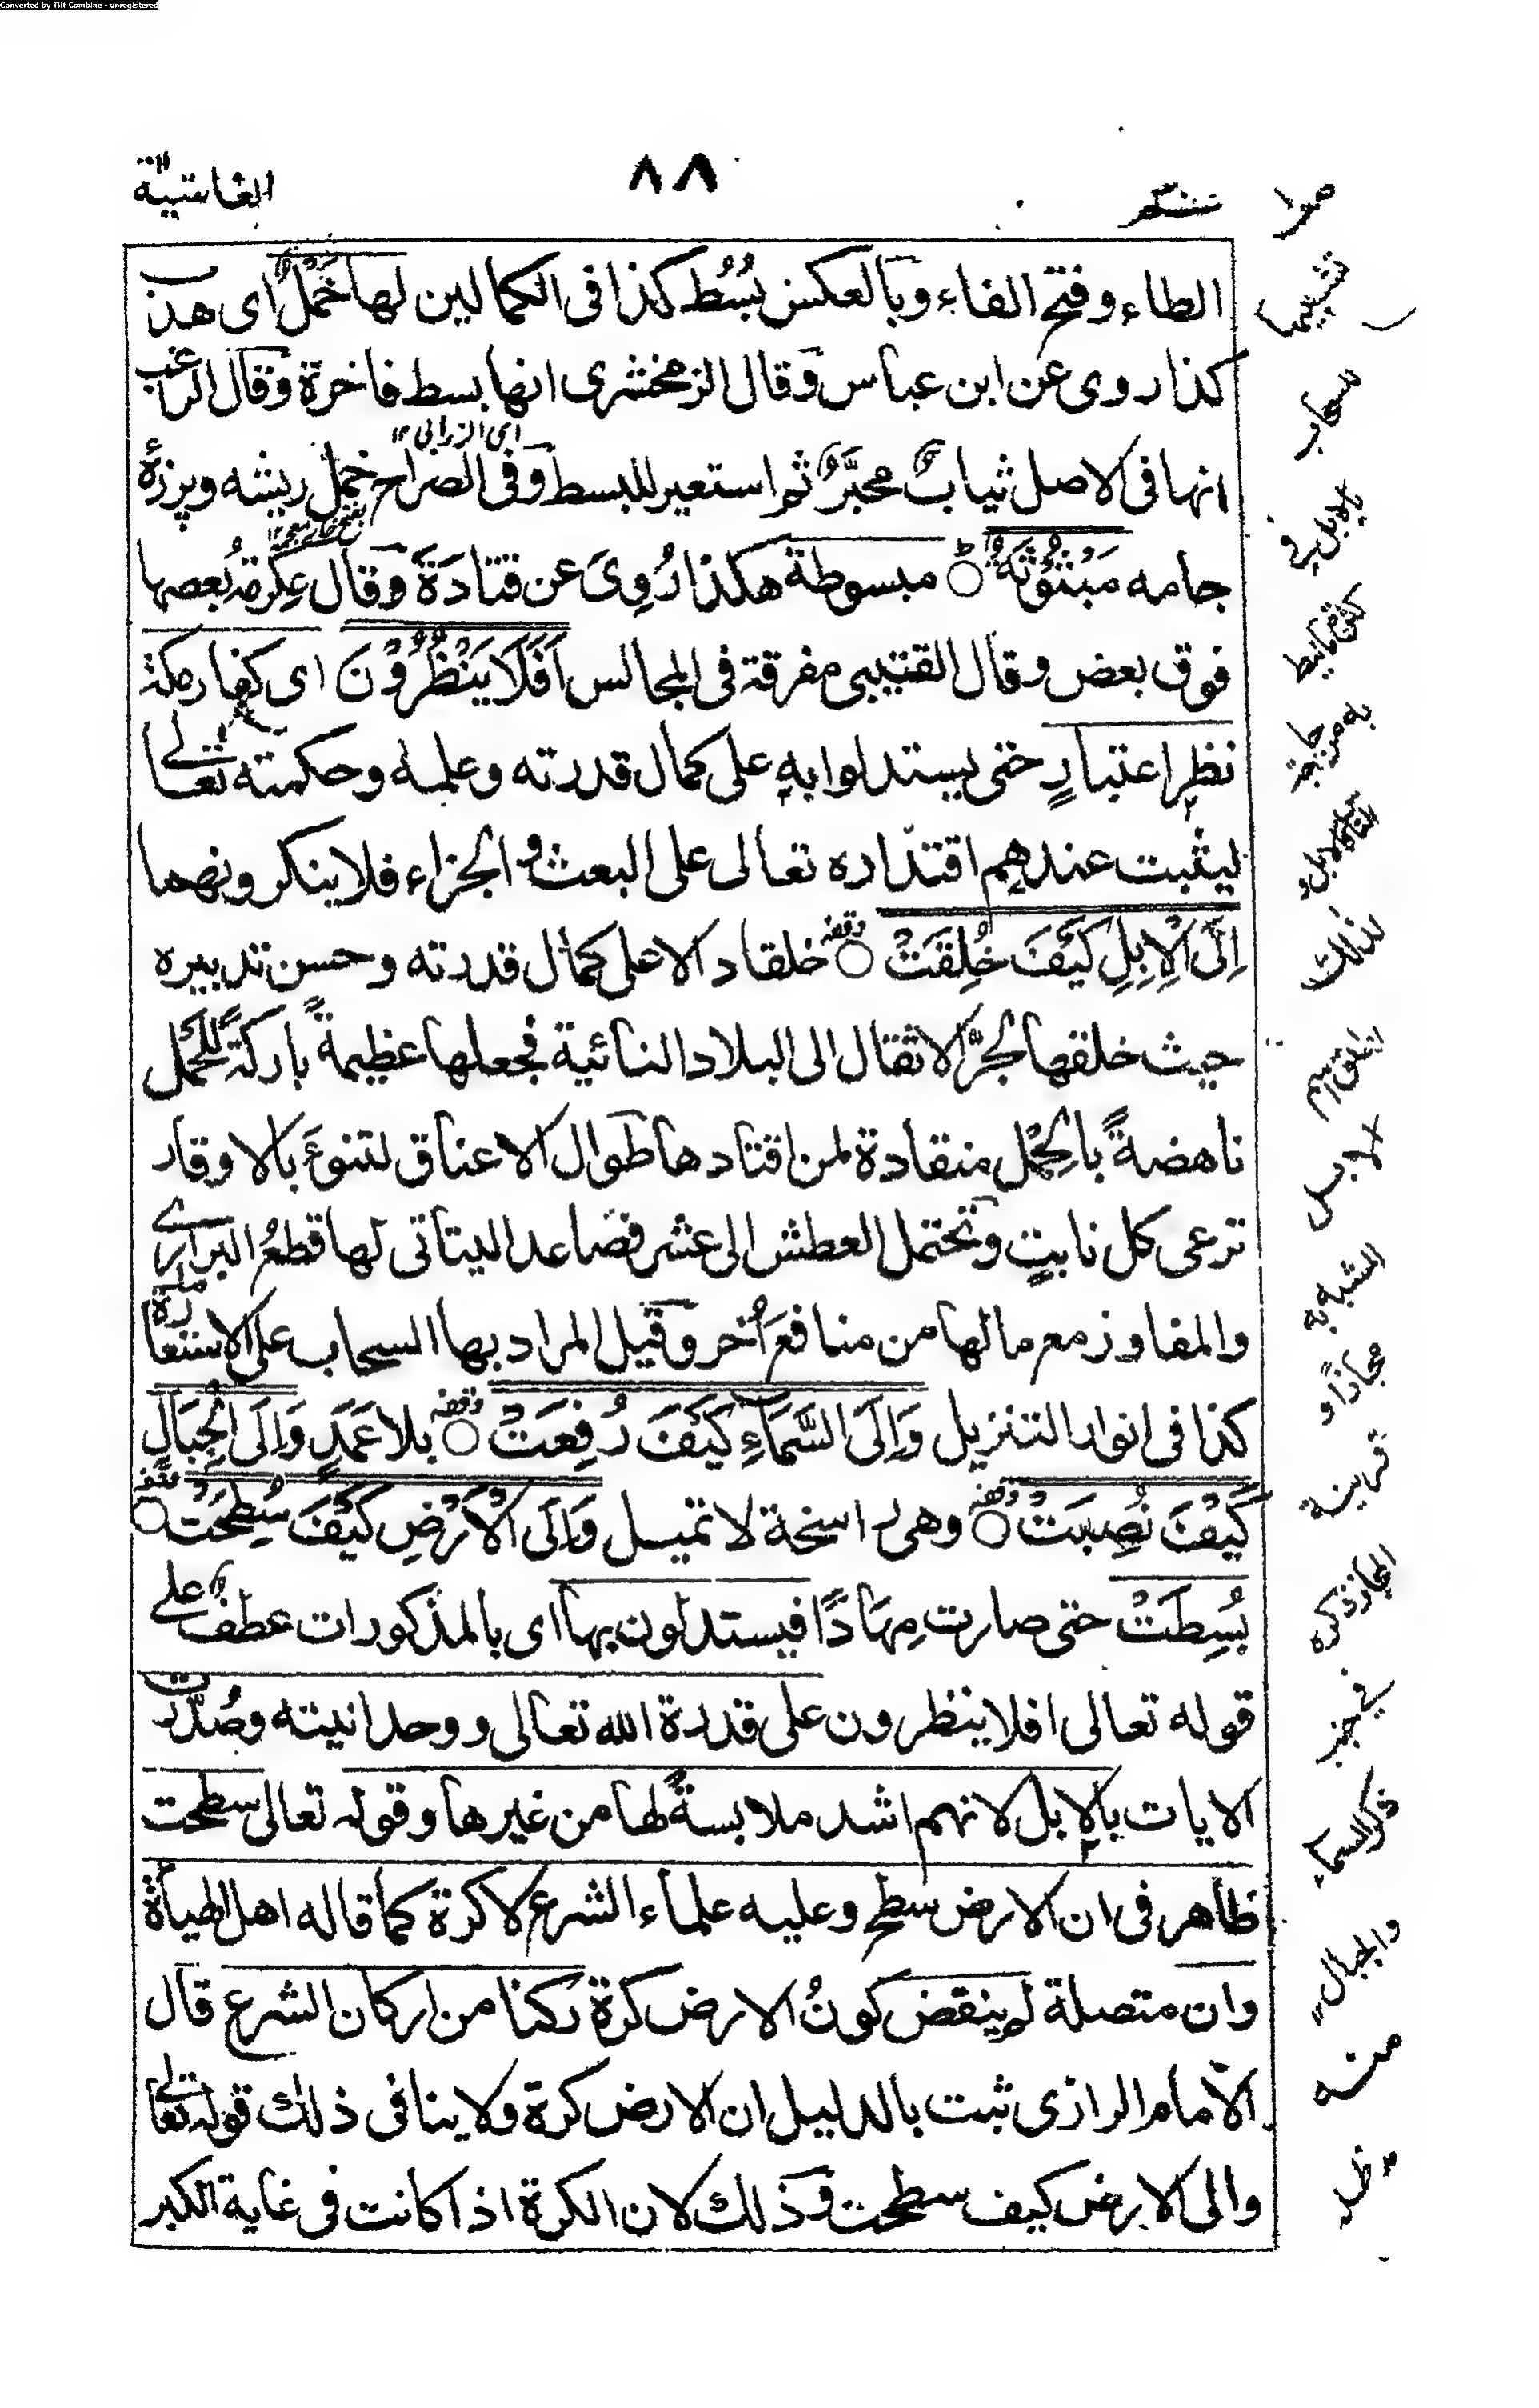 Converted by Tiff Combine - unregistered
الغاشية
٨٨
الطاء وفتح الفاء وبالعكس بُسُط كذا فى الكمالين لها خَمْلٌ اى هدب
كذا روى عن ابن عباس وقال الزمخشرى انها بسط فاخرة وقال الراغب
انها فى الاصل ثيابٌ محبَّرٌ ثم استعير للبسط وفى الصراح خمل ريشه وپرزهٔ
اى الزرابى ١٢
جامه مَبْثُوْثَةٌ ○ مبسوطة هكذا رُوِىَ عن قتادَةَ وقال عِكرمةُ بُعضها
فوق بعض وقال القتيبى مفرقة فى المجالس اَفَلَا يَنْظُرُوْنَ اى كفار مكة
نظر اعتبارٍ حتى يستدلوا به على كمال قدرته وعلمه وحكمته تعالى
ليثبت عندهم اقتداره تعالى على البعث والجزاء فلا ينكرونهما
اِلَى الْاِبِلِ كَيْفَ خُلِقَتْ ○ وقفة خلقا دالا على كمال قدرته وحسن تدبيره
حيث خلقها لجرِّ الاثقال الى البلاد النائية فجعلها عظيمةً باركةً للحَمل
ناهضةً بالحِمْل منقادة لمن اقتادها طوال الاعناق لتنوءَ بالاوقار
ترعى كل نابتٍ وتحتمل العطش الى عشر فصاعدا ليتاتى لها قطعُ البرارى
والمفاوز مع مالها من منافعَ اُخر وقيل المراد بها السحاب على الاستعارة
كذا فى انوار التنزيل وَاِلَى السَّمَآءِ كَيْفَ رُفِعَتْ ○ وقفة بلا عَمَدٍ وَاِلَى الْجِبَالِ
كَيْفَ نُصِبَتْ ○ وقفة وهى راسخة لا تميل وَاِلَى الْاَرْضِ كَيْفَ سُطِحَتْ ○ وقفة
بُسِطَتْ حتى صارت مِهَادًا فيستدلون بها اى بالمذكورات عطف على
قوله تعالى افلا ينظرون على قدرة الله تعالى ووحدانيته وصُدِّرت
الايات بالابل لانهم اشد ملابسةً لها من غيرها وقوله تعالى سطحت
ظاهر فى ان الارض سطح وعليه علماء الشرع لا كرة كما قاله اهل الهيأة
وان متصلة لم ينقض كونُ الارض كرة ركنا من اركان الشرع قال
الامام الرازى ثبت بالدليل ان الارض كرة ولا ينافى ذلك قوله تعالى
والى الارض كيف سطحت وذلك لان الكرة اذا كانت فى غاية الكبر
السحاب
بالابل فى
لذلك
الشبه به
مجازا و
قرينة
المجاز ذكره
ذكر السماء
والجبال
منه